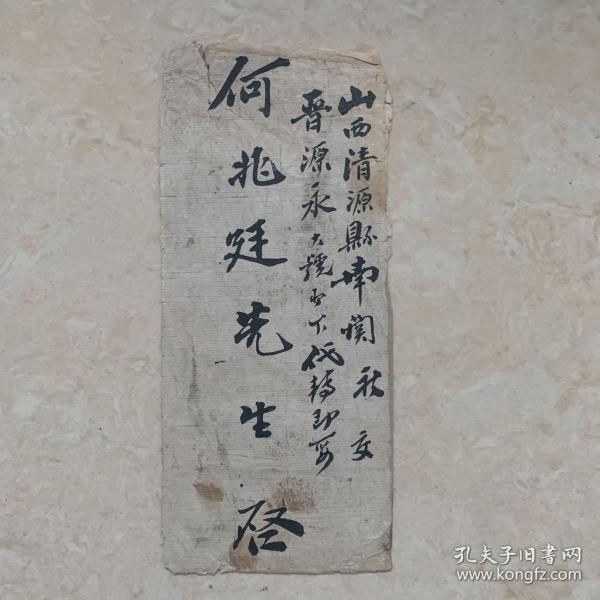 山西清源縣南関秋交
晋源永大號台下代轉即可
何兆廷先生啓
孔夫子旧書网
www.kongfz.com